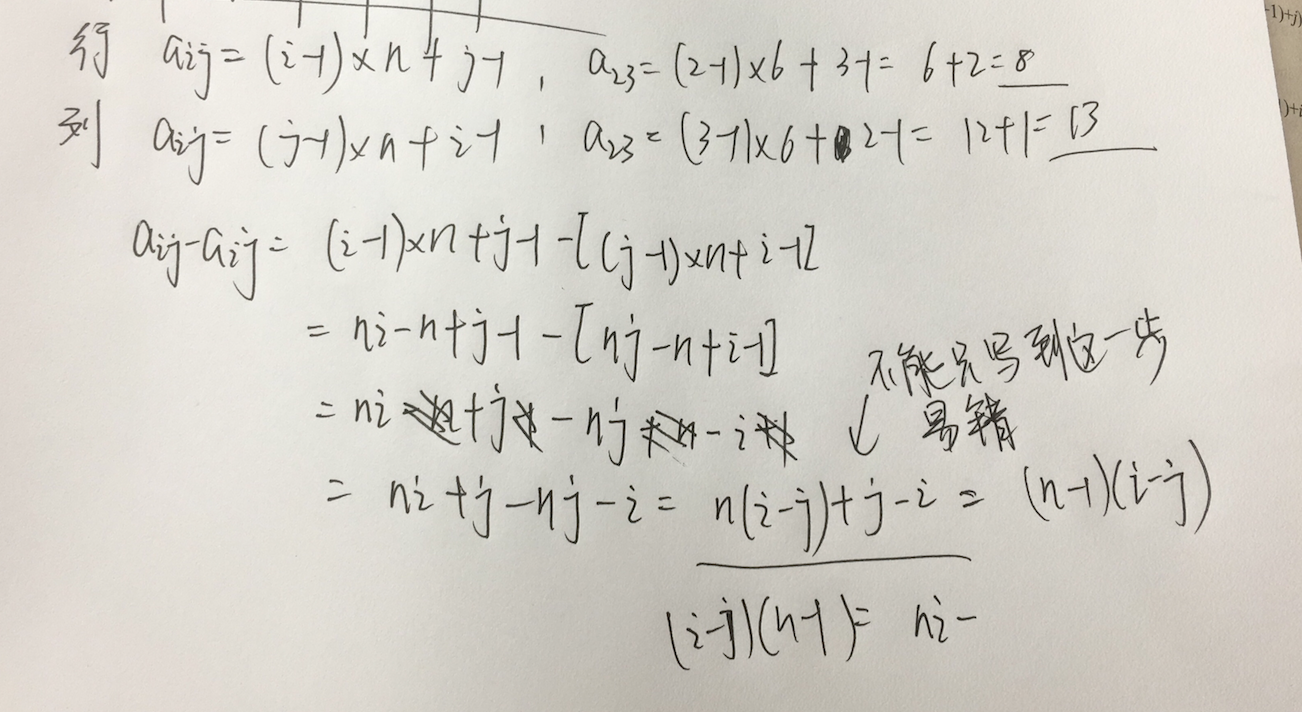 行 aij = (i-1)×n+j-1, a23 = (2-1)×6+3-1 = 6+2 = 8
列 aij = (j-1)×n+i-1, a23 = (3-1)×6+2-1 = 12+1 = 13
aij-aij = (i-1)×n+j-1-[(j-1)×n+i-1]
= ni-n+j-1-[nj-n+i-1]
不能只写到这一步
= ni-n+j-1-nj+n-i+1
易错
= ni+j-nj-i = n(i-j)+j-i = (n-1)(i-j)
(i-j)(n-1) = ni-